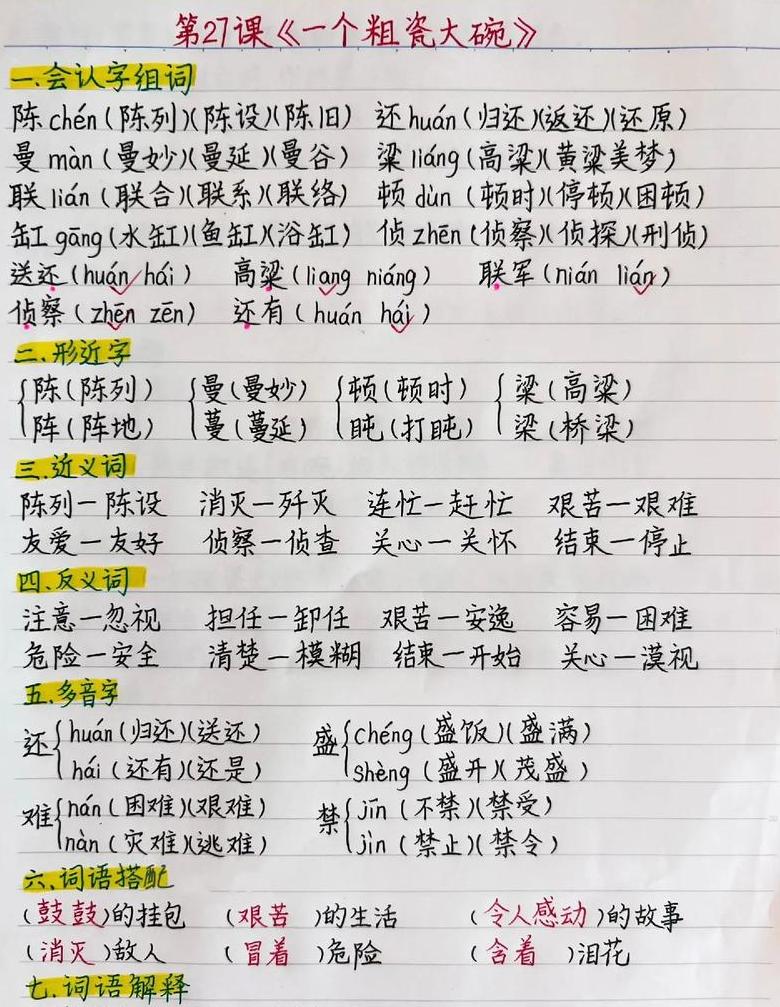 第27课《一个粗瓷大碗》
一.会认字组词
陈 chén (陈列)(陈设)(陈旧) 还 huán (归还)(返还)(还原)
曼 màn (曼妙)(曼延)(曼谷) 粱 liáng (高粱)(黄粱美梦)
联 lián (联合)(联系)(联络) 顿 dùn (顿时)(停顿)(困顿)
缸 gāng (水缸)(鱼缸)(浴缸) 侦 zhēn (侦察)(侦探)(刑侦)
送还 (huán hái) 高粱 (liang niáng) 联军 (nián lián)
侦察 (zhēn zēn) 还有 (huán hái)
二.形近字
陈(陈列) 曼(曼妙) 顿(顿时) 粱(高粱)
阵(阵地) 蔓(蔓延) 盹(打盹) 梁(桥梁)
三.近义词
陈列—陈设 消灭—歼灭 连忙—赶忙 艰苦—艰难
友爱—友好 侦察—侦查 关心—关怀 结束—停止
四.反义词
注意—忽视 担任—卸任 艰苦—安逸 容易—困难
危险—安全 清楚—模糊 结束—开始 关心—漠视
五.多音字
还 huán (归还)(送还) 盛 chéng (盛饭)(盛满)
hái (还有)(还是) shèng (盛开)(茂盛)
难 nán (困难)(艰难) 禁 jīn (不禁)(禁受)
nàn (灾难)(逃难) jìn (禁止)(禁令)
六.词语搭配
(鼓鼓)的挂包 (艰苦)的生活 (令人感动)的故事
(消灭)敌人 (冒着)危险 (含着)泪花
七.词语解释